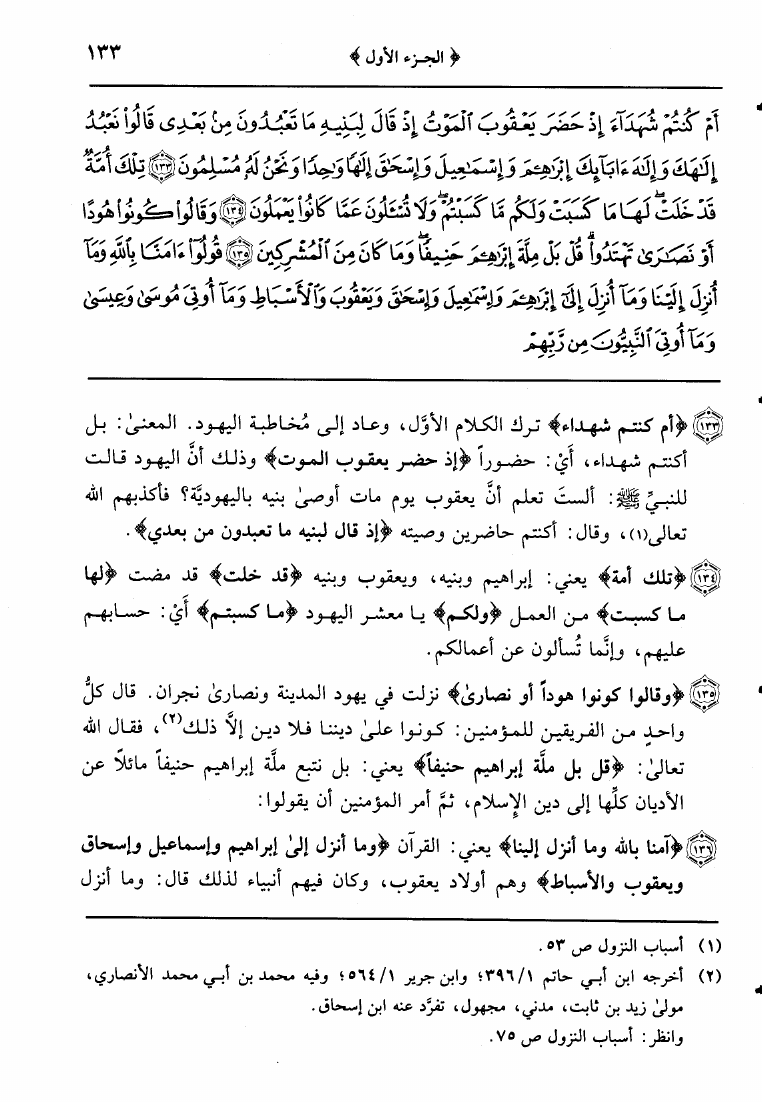 ﴿ الجزء الأول ﴾ ١٣٣
أَمْ كُنتُمْ شُهَدَآءَ إِذْ حَضَرَ يَعْقُوبَ ٱلْمَوْتُ إِذْ قَالَ لِبَنِيهِ مَا تَعْبُدُونَ مِنۢ بَعْدِى قَالُوا۟ نَعْبُدُ
إِلَٰهَكَ وَإِلَٰهَ ءَابَآئِكَ إِبْرَٰهِـۧمَ وَإِسْمَٰعِيلَ وَإِسْحَٰقَ إِلَٰهًا وَٰحِدًا وَنَحْنُ لَهُۥ مُسْلِمُونَ ﴿١٣٣﴾ تِلْكَ أُمَّةٌ
قَدْ خَلَتْ ۖ لَهَا مَا كَسَبَتْ وَلَكُم مَّا كَسَبْتُمْ ۖ وَلَا تُسْـَٔلُونَ عَمَّا كَانُوا۟ يَعْمَلُونَ ﴿١٣٤﴾ وَقَالُوا۟ كُونُوا۟ هُودًا
أَوْ نَصَٰرَىٰ تَهْتَدُوا۟ ۗ قُلْ بَلْ مِلَّةَ إِبْرَٰهِـۧمَ حَنِيفًا ۖ وَمَا كَانَ مِنَ ٱلْمُشْرِكِينَ ﴿١٣٥﴾ قُولُوٓا۟ ءَامَنَّا بِٱللَّهِ وَمَآ
أُنزِلَ إِلَيْنَا وَمَآ أُنزِلَ إِلَىٰٓ إِبْرَٰهِـۧمَ وَإِسْمَٰعِيلَ وَإِسْحَٰقَ وَيَعْقُوبَ وَٱلْأَسْبَاطِ وَمَآ أُوتِىَ مُوسَىٰ وَعِيسَىٰ
وَمَآ أُوتِىَ ٱلنَّبِيُّونَ مِن رَّبِّهِمْ
﴿١٣٣﴾ ﴿أم كنتم شهداء﴾ ترك الكلام الأوَّل، وعاد إلى مُخاطبة اليهود. المعنىٰ: بل
أكنتم شهداء، أيْ: حضوراً ﴿إذ حضر يعقوب الموت﴾ وذلك أنَّ اليهود قالت
للنبيِّ ﷺ: ألستَ تعلم أنَّ يعقوب يوم مات أوصىٰ بنيه باليهوديَّة؟ فأكذبهم الله
تعالى(١)، وقال: أكنتم حاضرين وصيته ﴿إذ قال لبنيه ما تعبدون من بعدي﴾.
﴿١٣٤﴾ ﴿تلك أمة﴾ يعني: إبراهيم وبنيه، ويعقوب وبنيه ﴿قد خلت﴾ قد مضت ﴿لها
ما كسبت﴾ من العمل ﴿ولكم﴾ يا معشر اليهود ﴿ما كسبتم﴾ أيْ: حسابهم
عليهم، وإنَّما تُسألون عن أعمالكم.
﴿١٣٥﴾ ﴿وقالوا كونوا هوداً أو نصارىٰ﴾ نزلت في يهود المدينة ونصارىٰ نجران. قال كلُّ
واحدٍ من الفريقين للمؤمنين: كونوا علىٰ ديننا فلا دين إلاَّ ذلك(٢)، فقال الله
تعالىٰ: ﴿قل بل ملَّة إبراهيم حنيفاً﴾ يعني: بل نتبع ملَّة إبراهيم حنيفاً مائلاً عن
الأديان كلِّها إلى دين الإسلام، ثمَّ أمر المؤمنين أن يقولوا:
﴿١٣٦﴾ ﴿آمنا بالله وما أنزل إلينا﴾ يعني: القرآن ﴿وما أنزل إلىٰ إبراهيم وإسماعيل وإسحاق
ويعقوب والأسباط﴾ وهم أولاد يعقوب، وكان فيهم أنبياء لذلك قال: وما أنزل
(١) أسباب النزول ص ٥٣.
(٢) أخرجه ابن أبي حاتم ٣٩٦/١؛ وابن جرير ٥٦٤/١؛ وفيه محمد بن أبي محمد الأنصاري،
مولىٰ زيد بن ثابت، مدني، مجهول، تفرَّد عنه ابن إسحاق.
وانظر: أسباب النزول ص ٧٥.